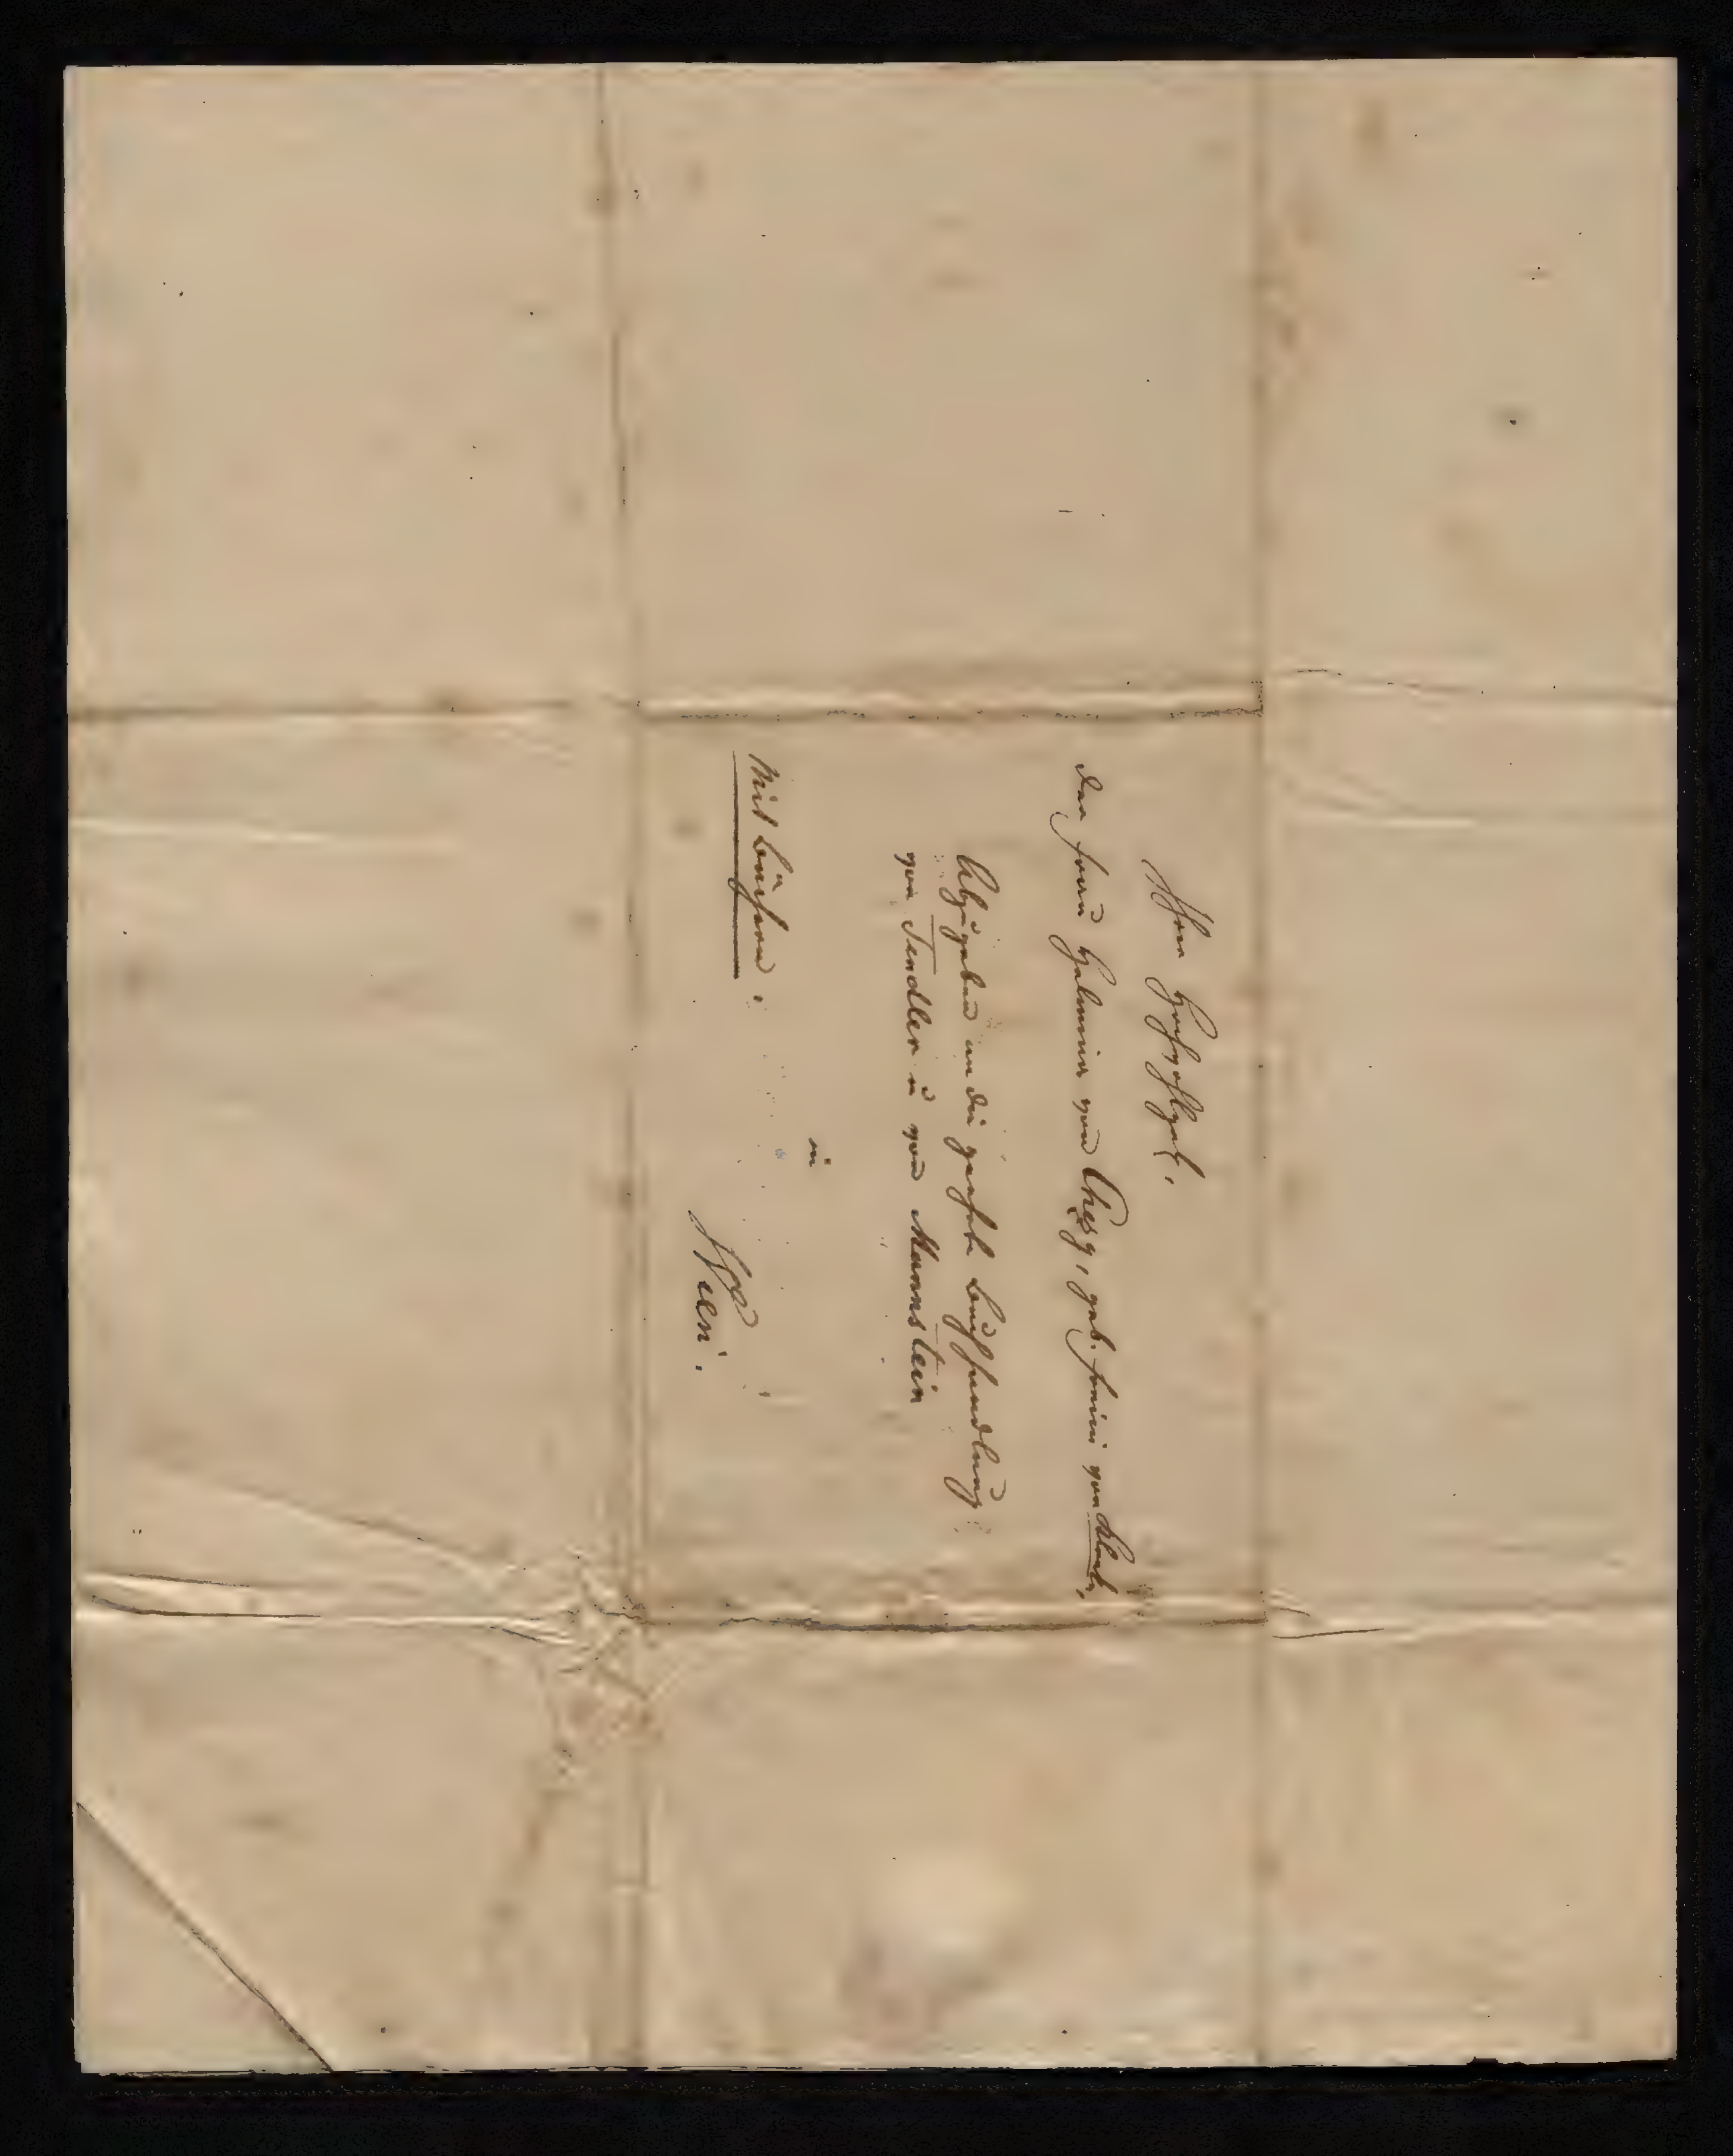 Ihro Hochwohlgeb.
der Frau Helmina von Chezy, geb. Freiin von Klenke,
Abzugeben an die geehrte Buchhandlung
von Tendler u von Manstein
in
Wien.
Mit Büchern.